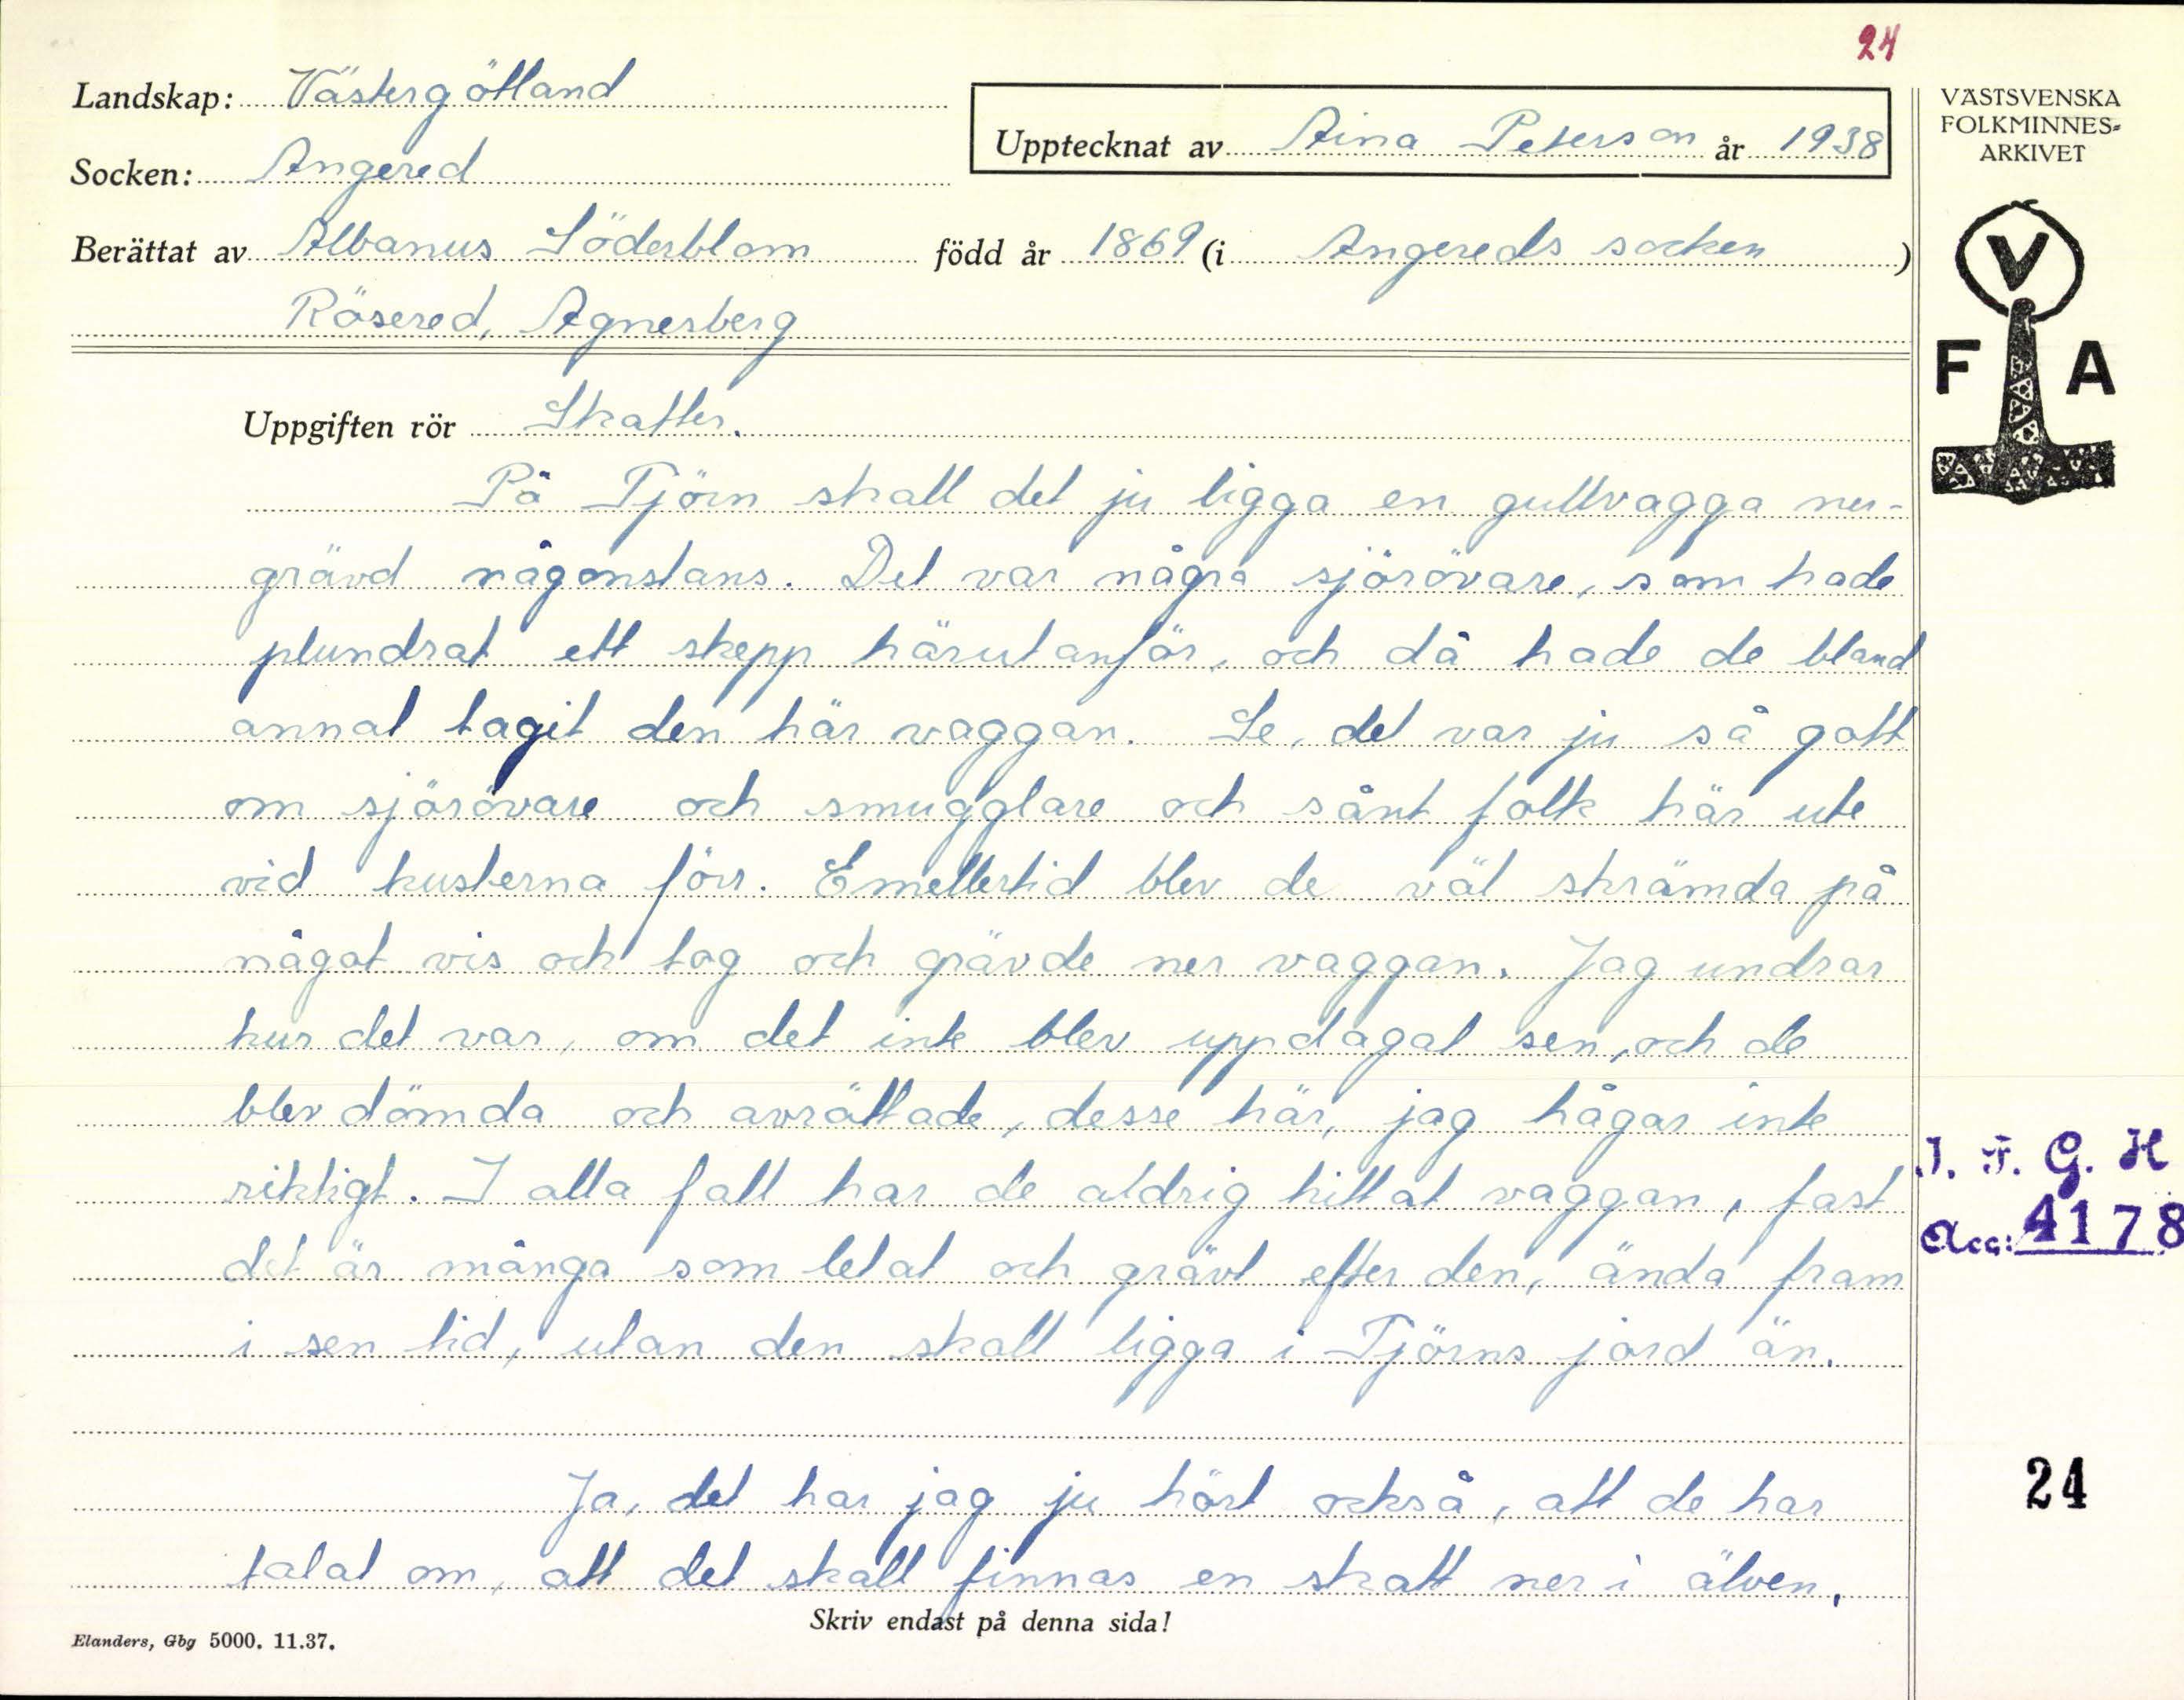 24
Landskap: Västergötland
VÄSTSVENSKA
FOLKMINNES-
ARKIVET
Upptecknat av Aina Peterson år 1938
Socken: Angered
Berättat av Albanus Söderblom född år 1869 (i Angereds socken)
Rösered, Agnesberg
V
F A
Uppgiften rör Skatter.
På Tjörn skall det ju ligga en gullvagga ner-
grävd någonstans. Det var några sjörövare, som hade
plundrat ett skepp härutanför, och då hade de bland
annat tagit den här vaggan. Se, det var ju så gott
om sjörövare och smugglare och sånt folk här ute
vid kusterna förr. Emellertid blev de väl skrämda på
något vis och tog och grävde ner vaggan. Jag undrar
hur det var, om det inte blev uppdagat sen, och de
blev dömda och avrättade, desse här, jag hågar inte
riktigt. I alla fall har de aldrig hittat vaggan, fast
det är många som letat och grävt efter den, ända fram
i sen tid, utan den skall ligga i Tjörns jord än.
I. F. G. H
Acc: 4178
24
Ja, det har jag ju hört också, att de har
talat om, att det skall finnas en skatt ner i älven,
Skriv endast på denna sida!
Elanders, Gbg 5000. 11.37.